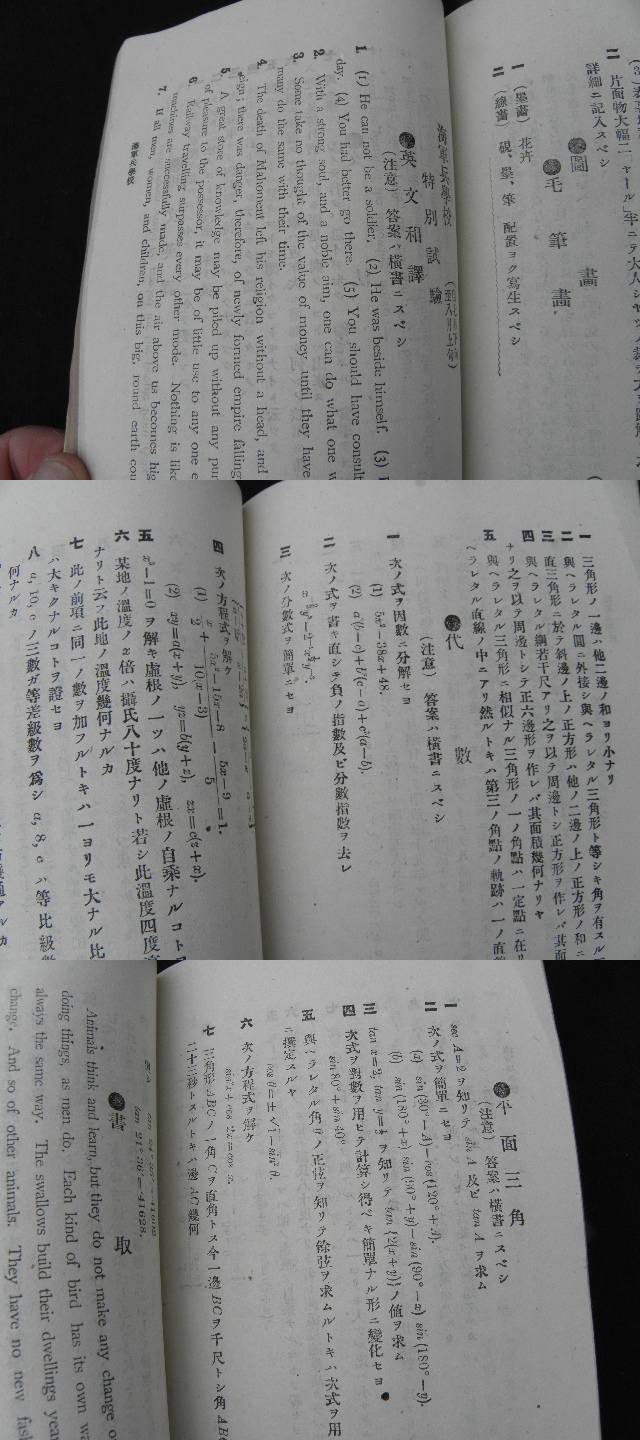 二 片面物大幅二ヤール
詳細ニ記入スベシ
圖畫
毛筆畫
一 (墨畫) 花卉
二 (線畫) 硯、墨、筆 配置ヨク寫生スベシ
海軍兵學校
特別試驗
英文和譯
(注意) 答案ハ橫書ニスベシ
1. (1) He can not be a soldier. (2) He was beside himself. (3)
day. (4) You had better go there. (5) You should have
2. With a strong soul, and a noble aim, one can do what one
3. Some take no thought of the value of money until they have
many do the same with their time.
4. The death of Mahoment left his religion without a head, and
there was danger, therefore, of newly formed empire falling
5. A great store of knowledge may be piled up without any
of pleasure to the possessor, it may be of little use to any one
6. Railway travelling surpasses every other mode. Nothing is
machines are successfully made, and the air above us becomes
7. If all men, women, and children, on this big, round earth
海軍兵學校
一 三角形ノ一邊ハ他二邊ノ和ヨリ小ナリ
二 與ヘラレタル圓ニ外接シ與ヘラレタル三角形ト等シキ角ヲ有スル
三 直三角形ニ於テ斜邊ノ上ノ正方形ハ他ノ二邊ノ上ノ正方形ノ和ニ
四 與ヘラレタル綱若干尺アリ之ヲ以テ周邊トシ正方形ヲ作レバ其面
ナリ之ヲ以テ周邊トシテ正六邊形ヲ作レバ其面積幾何ナリヤ
五 與ヘラレタル三角形ニ相似ナル三角形ノ一ノ角點ハ一定點ニ在リ
ヘラレタル直線ノ中ニアリ然ルトキハ第三ノ角點ノ軌跡ハ一ノ直
代數
(注意) 答案ハ橫書ニスベシ
一 次ノ式ヲ因數ニ分解セヨ
(1) 5x²−38x+48.
(2) a³(b−c)+b³(c−a)+c³(a−b).
二 次ノ式ヲ書キ直シテ負ノ指數及ビ分數指數ヲ去レ
三 次ノ分數式ヲ簡單ニセヨ
四 次ノ方程式ヲ解ケ
(1) x/2 + (5x²−15x−8)/10(x−3) − (5x−9)/5 = 1.
(2) xy=a(x+y), yz=b(y+z), zx=c(z+x).
五 x³−1=0 ヲ解キ虛根ノ一ツハ他ノ虛根ノ自乘ナルコト
六 某地ノ溫度ノ x 倍ハ攝氏八十度ナリト若シ此溫度四度
ナリト云フ此地ノ溫度幾何ナルカ
七 此ノ前項ニ同一ノ數ヲ加フルトキハ一ヨリモ大ナル比
ハ大キクナルコトヲ證セヨ
八 a, 10, c ノ三數ガ等差級數ヲ爲シ a, 8, c ハ等比級
何ナルカ
平面三角
(注意) 答案ハ橫書ニスベシ
一 sec A=2 ヲ知リテ sin A 及ビ tan A ヲ求ム
二 次ノ式ヲ簡單ニセヨ
(a) sin (30°−A)−cos (120°+A).
(b) sin (180°+x) sin (90°+y)−sin (90°−x) sin (180°−y).
三 tan x=2, tan y=⅓ ヲ知リテ tan {2(x+y)} ノ値ヲ求ム
四 次式ヲ對數ヲ用ヒテ計算シ得ベキ簡單ナル形ニ變化セヨ
sin 80°+sin 40°
五 與ヘラレタル角 θ ノ正弦ヲ知リテ餘弦ヲ求ムルトキハ次式ヲ用
ニ撰定スルヤ
cos θ=±√1−sin²θ.
六 次ノ方程式ヲ解ケ
sin²x+cos 2x=cos x.
七 三角形 ABC ノ一角 C ヲ直角トス今一邊 BC ヲ千尺トシ角
二十三秒トスルトキハ邊 AC 幾何
tan 21° 36′=·41628.
書取
Animals think and learn, but they do not make any change
doing things, as men do. Each kind of bird has its own
always the same way. The swallows build their dwellings
change. And so of other animals. They have no new